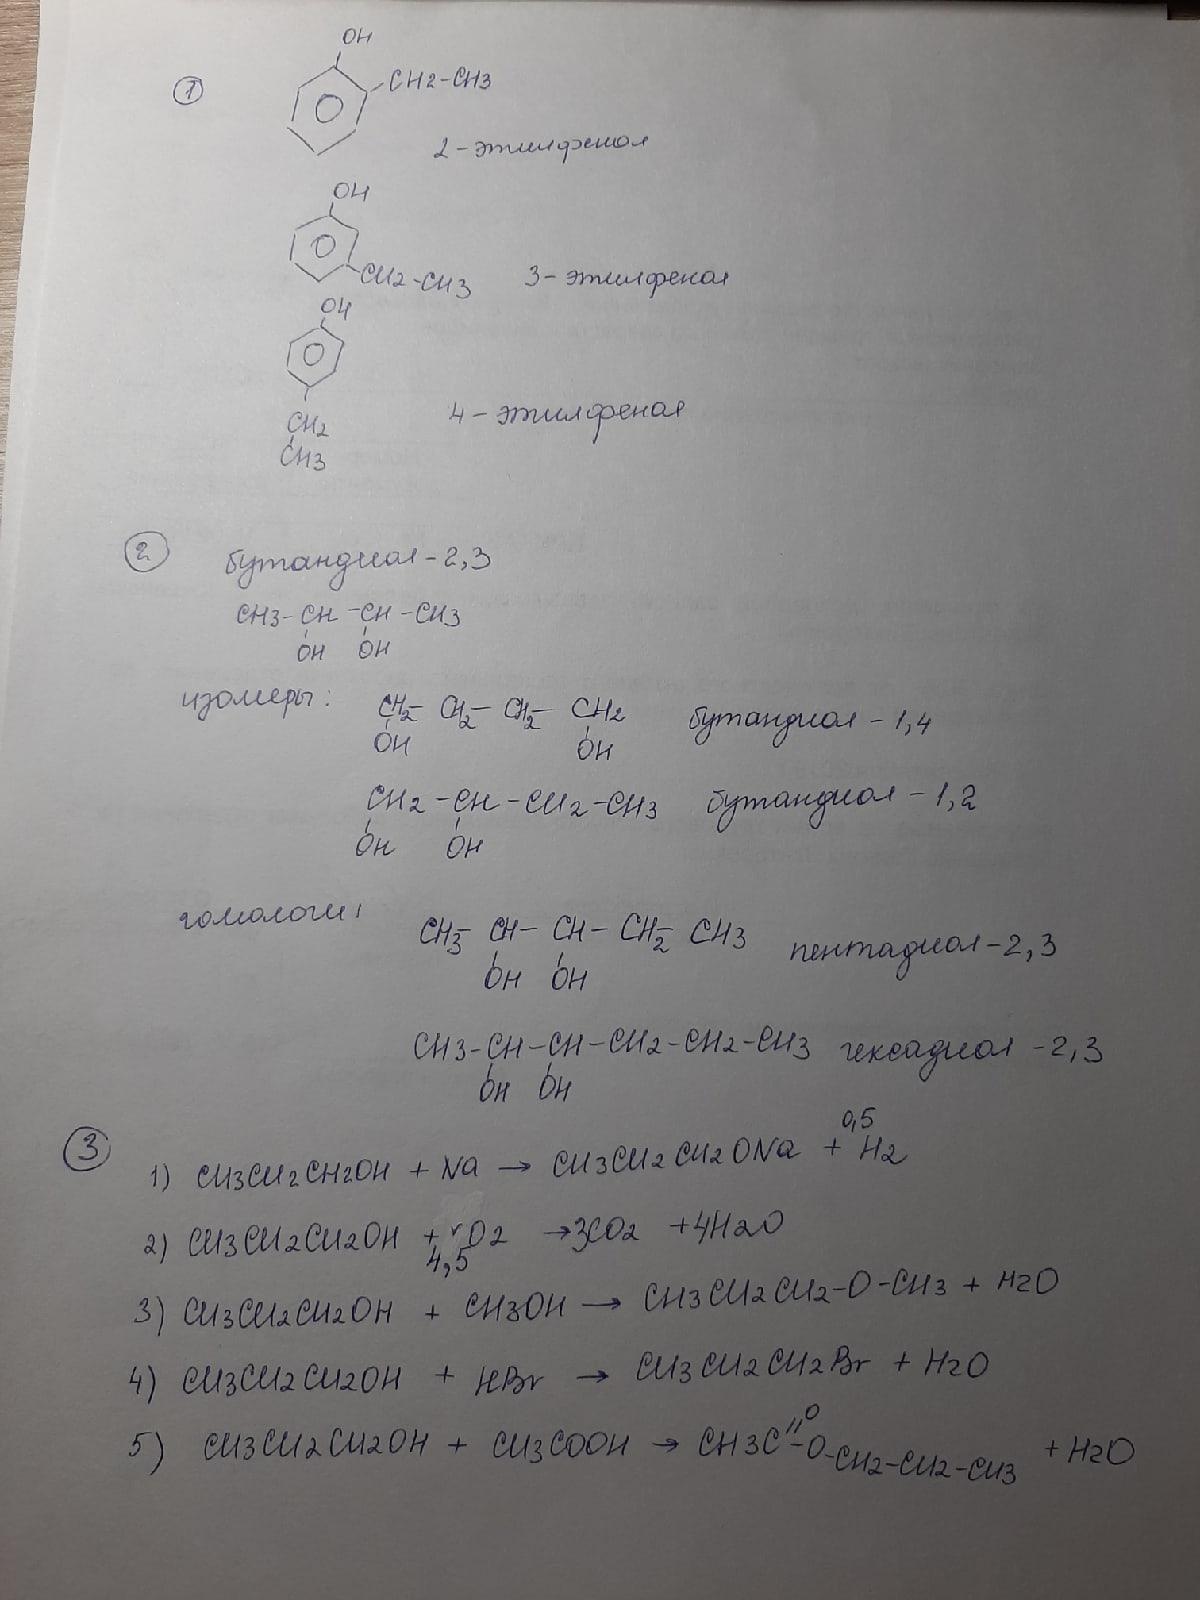 1
OH
CH2-CH3
2-этилфенол
OH
CH2-CH3 3-этилфенол
OH
4-этилфенол
CH2
CH3
2 бутандиол-2,3
CH3-CH-CH-CH3
OH OH
изомеры: CH2-CH2-CH2-CH2 бутандиол-1,4
OH OH
CH2-CH-CH2-CH3 бутандиол-1,2
OH OH
гомологи: CH3-CH-CH-CH2-CH3 пентадиол-2,3
OH OH
CH3-CH-CH-CH2-CH2-CH3 гексадиол-2,3
OH OH
3
1) CH3CH2CH2OH + Na → CH3CH2CH2ONa + 0,5 H2
2) CH3CH2CH2OH + 4,5 O2 → 3CO2 + 4H2O
3) CH3CH2CH2OH + CH3OH → CH3CH2CH2-O-CH3 + H2O
4) CH3CH2CH2OH + HBr → CH3CH2CH2Br + H2O
5) CH3CH2CH2OH + CH3COOH → CH3C=O-O-CH2-CH2-CH3 + H2O